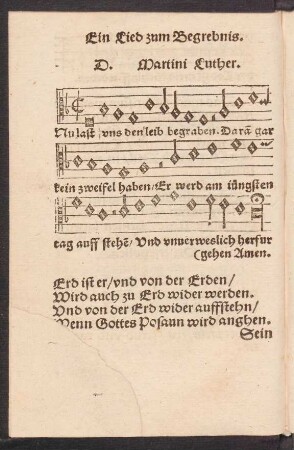 Ein Lied zum Begrebnis.
D. Martini Luther.
Nu last vns den leib begraben. Darā gar
kein zweifel haben/ Er werd am iüngsten
tag auff stehē/ Vnd vnuerweslich herfur
(gehen Amen.
Erd ist er/ vnd von der Erden/
Wird auch zu Erd wider werden.
Vnd von der Erd wider auffstehn/
Wenn Gottes Posaun wird anghen.
Sein